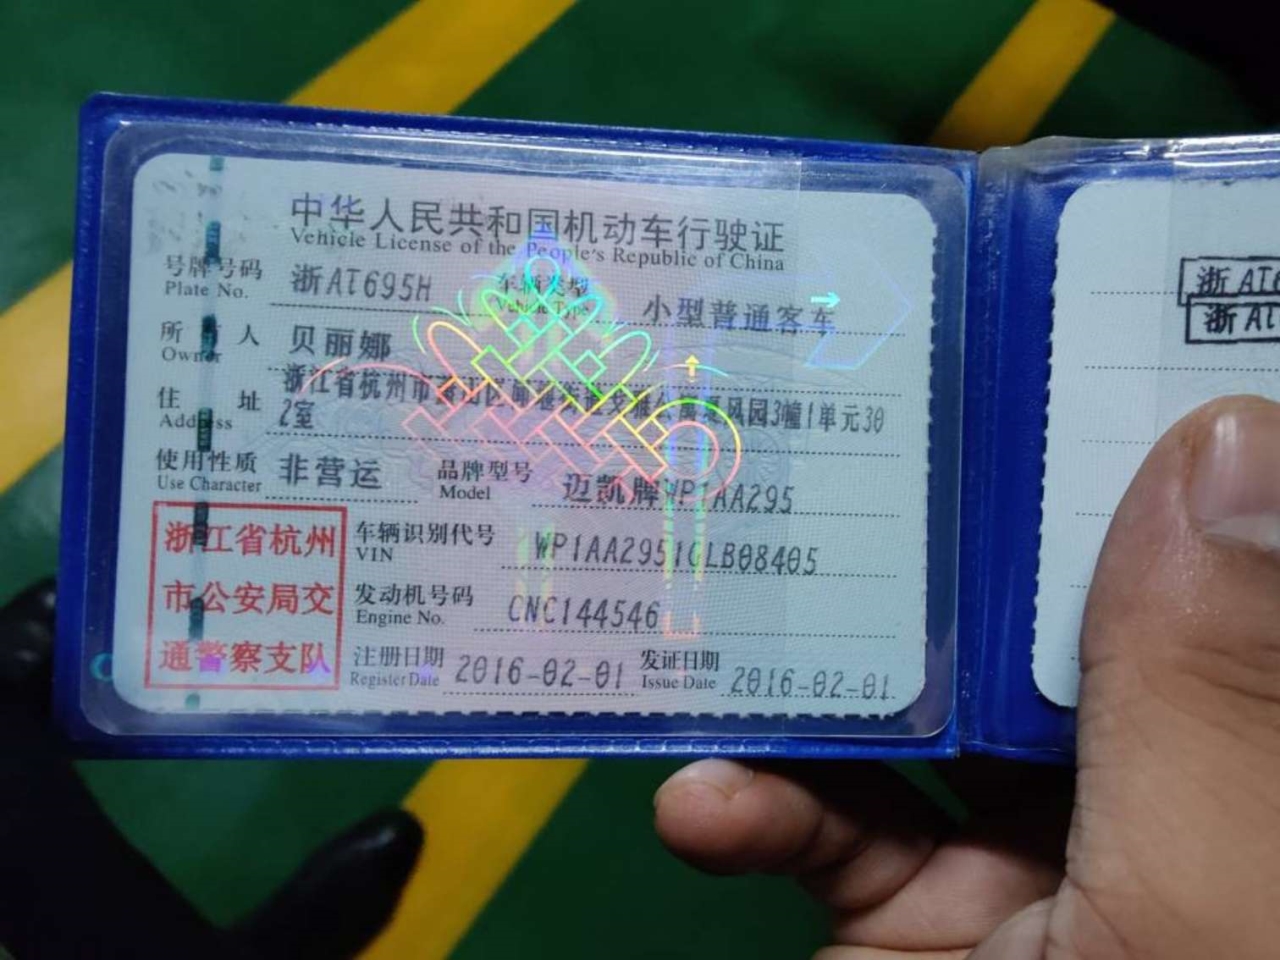 中华人民共和国机动车行驶证
Vehicle License of the People's Republic of China
号牌号码 浙AT695H 车辆类型 小型普通客车
Plate No. Vehicle Type
所有人 贝丽娜
Owner
住址 浙江省杭州市萧山区 风园3幢1单元30
Address 2室
使用性质 非营运 品牌型号 迈凯牌WP1AA295
Use Character Model
浙江省杭州
市公安局交
通警察支队
车辆识别代号 WP1AA2951GLB08405
VIN
发动机号码 CNC144546
Engine No.
注册日期 2016-02-01 发证日期 2016-02-01
Register Date Issue Date
浙AT6
浙AL